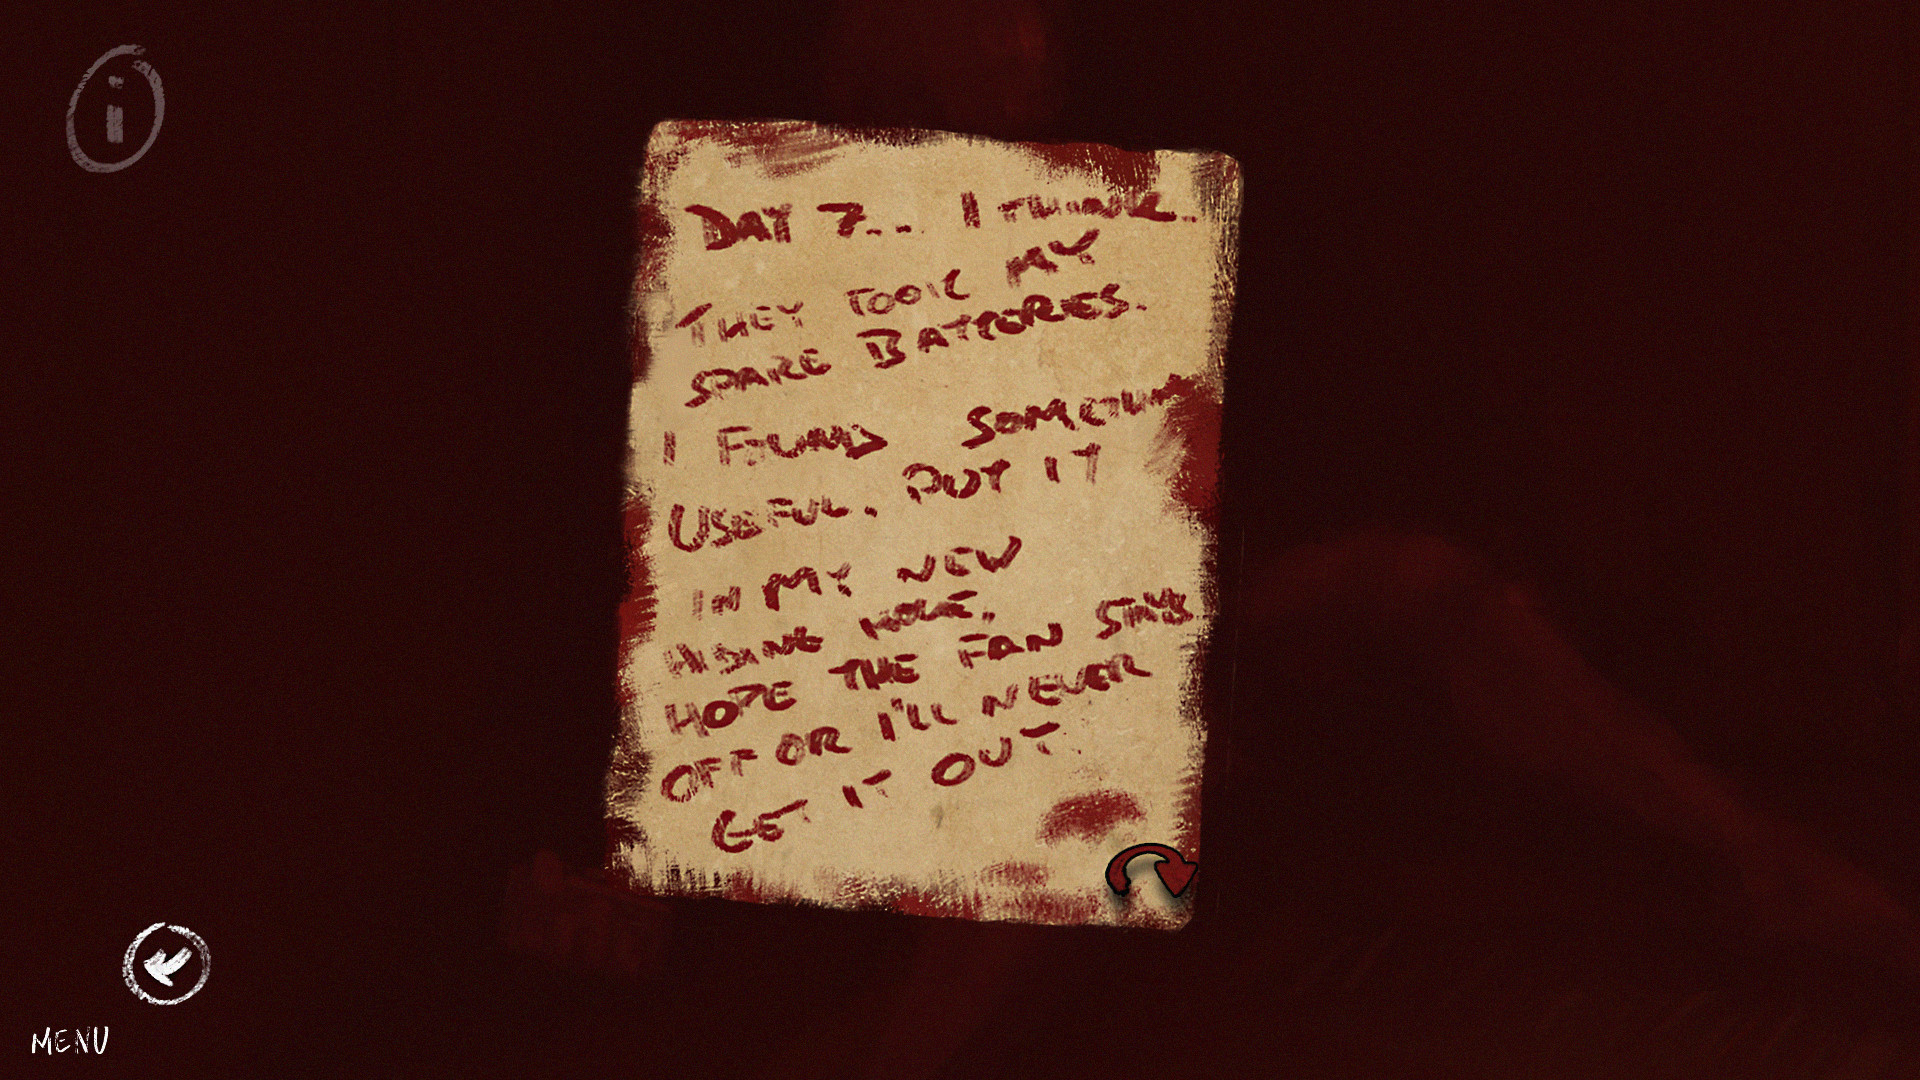 DAY 7... I THINK..
THEY TOOK MY
SPARE BATTERIES.
I FOUND
USEFUL. PUT IT
IN MY NEW
HIDING HOLE.
HOPE THE FAN STAYS
OFF OR I'LL NEVER
GET IT OUT.
i
MENU